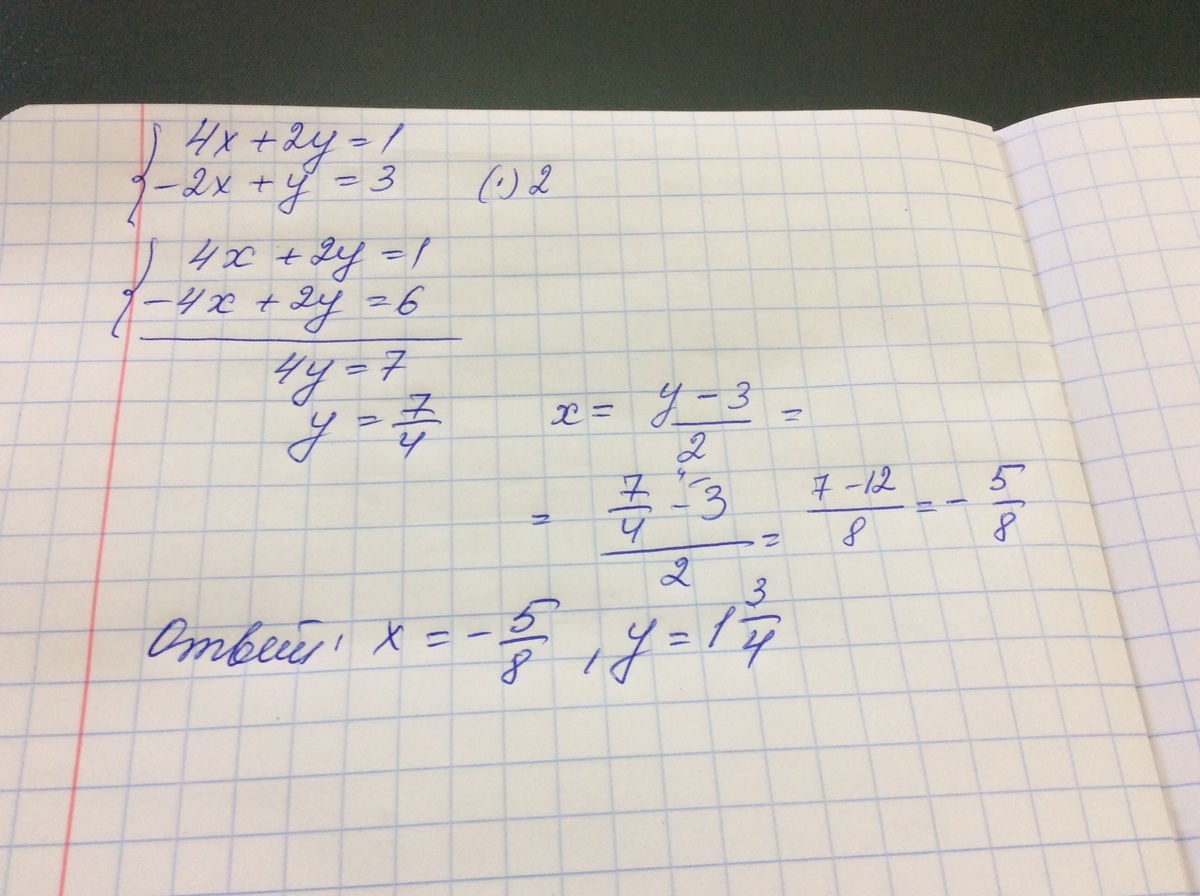 4x + 2y = 1
-2x + y = 3 (·) 2
4x + 2y = 1
-4x + 2y = 6
4y = 7
y = 7/4 x = (y - 3)/2 =
= (7/4 - 3)/2 = (7 - 12)/8 = - 5/8
Ответ: x = - 5/8 , y = 1 3/4